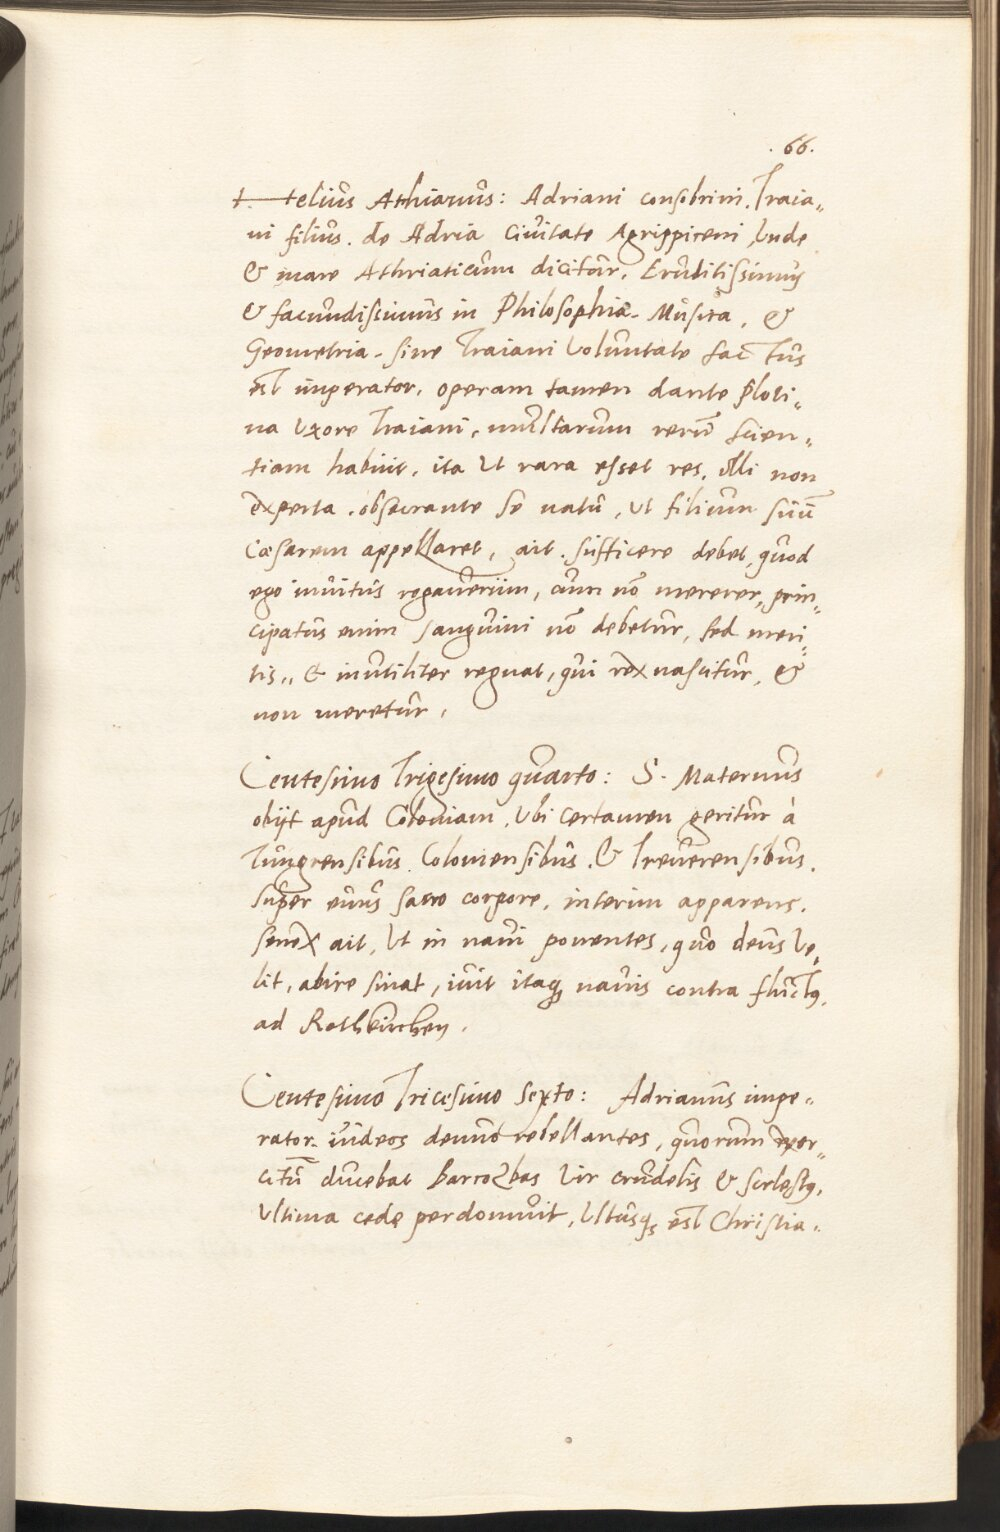 . 66.
t telius Athianus: Adriani consobrini. Traia„
ni filius. de Adria Ciuitate Agrippiceni, Unde
& mare Athriaticum dicitur. Eruditissimus
& facundissimus in Philosophia. Musica, &
Geometria. sine Traiani Voluntate factus
est imperator, operam tamen dante Ploti„
na Uxore Traiani, multarum rerū scien„
tiam habuit, ita Ut rara esset res, illi non
experta. obsecrante Se natu, Ut filium suū
Cæsarem appellaret, ait. sufficere debet, quod
ego inuitus regauerim, cum nō mererer„ prin„
cipatus enim sanguini nō debetur, sed meri„
tis„ & inutiliter regnat, qui rex nascitur, &
non meretur.
Centesimo Trigesimo quarto: S. Maternus
obijt apud Coloniam, Ubi certamen geritur à
Tungrensibus. Coloniensibus. & Treuerensibus.
super euius sacro corpore, interim apparens.
senex ait, Ut in naui ponentes, quo deus Ve„
lit, abire sinat, iuit itaq; nauis contra fluctus,
ad Rothkirchen.
Centesimo Tricesimo Sexto: Adrianus impe„
rator. iudeos denuo rebellantes, quorum exer„
citū ducebat Barrozbas Vir crudelis & scelestus,
Ultima cede perdomuit, Ultusq; est Christia„